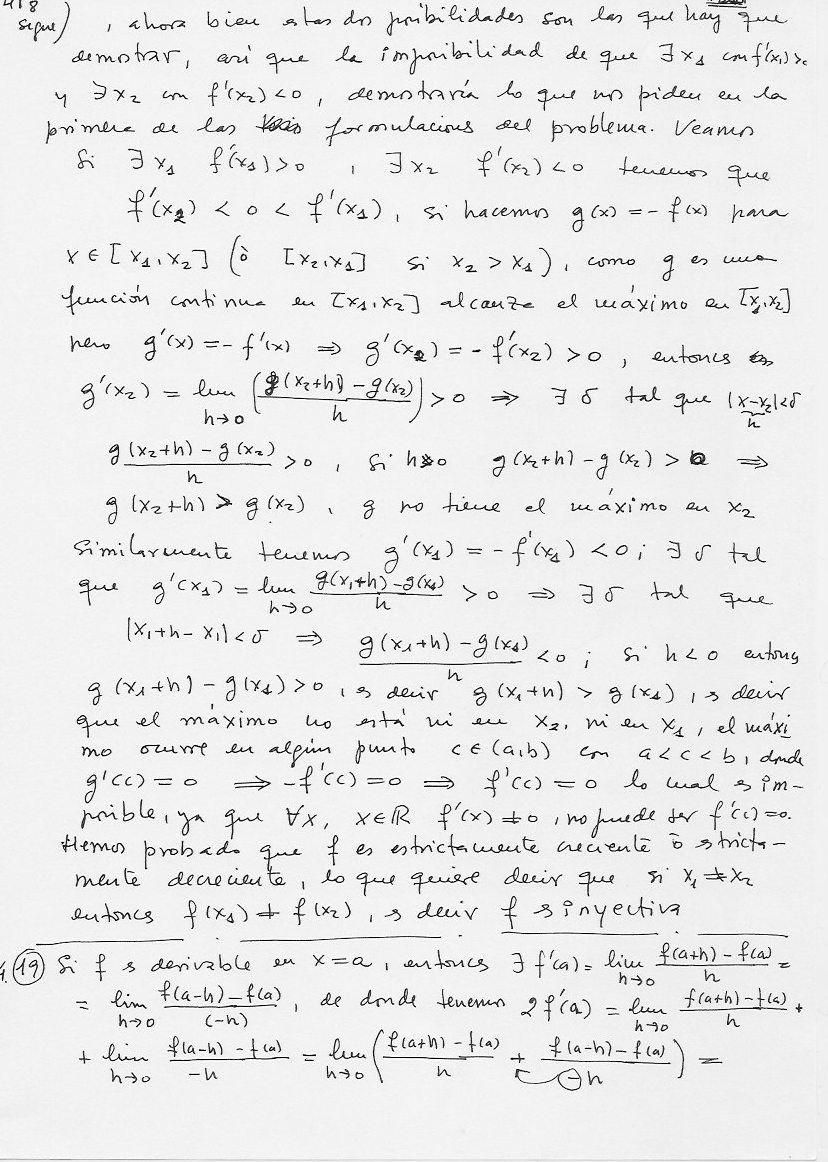 418
sigue) , ahora bien estas dos posibilidades son las que hay que
demostrar, así que la imposibilidad de que ∃x₁ con f'(x₁)>0
y ∃x₂ con f'(x₂)<0, demostraría lo que nos piden en la
primera de las formulaciones del problema. Veamos
Si ∃x₁ f'(x₁)>0 , ∃x₂ f'(x₂)<0 tenemos que
f'(x₂) < 0 < f'(x₁), si hacemos g(x) = -f(x) para
x ∈ [x₁,x₂] (ò [x₂,x₁] si x₂ > x₁), como g es una
función continua en [x₁,x₂] alcanza el máximo en [x₁,x₂]
pero g'(x) = -f'(x) ⇒ g'(x₂) = -f'(x₂) > 0, entonces
g'(x₂) = lim h→0 (g(x₂+h) - g(x₂))/h > 0 ⇒ ∃ δ tal que |x-x₂|<δ
(g(x₂+h) - g(x₂))/h > 0, si h>0 g(x₂+h) - g(x₂) > 0 ⇒
g(x₂+h) > g(x₂), g no tiene el máximo en x₂
Similarmente tenemos g'(x₁) = -f'(x₁) < 0; ∃ δ tal
que g'(x₁) = lim h→0 (g(x₁+h) - g(x₁))/h > 0 ⇒ ∃ δ tal que
|x₁+h - x₁| < δ ⇒ (g(x₁+h) - g(x₁))/h < 0; si h<0 entonces
g(x₁+h) - g(x₁) > 0, es decir g(x₁+h) > g(x₁), es decir
que el máximo no está ni en x₂, ni en x₁, el máxi
mo ocurre en algún punto c ∈ (a,b) con a<c<b, donde
g'(c) = 0 ⇒ -f'(c) = 0 ⇒ f'(c) = 0 lo cual es im-
posible, ya que ∀x, x∈ℝ f'(x) ≠ 0, no puede ser f'(c)=0.
Hemos probado que f es estrictamente creciente ò estricta-
mente decreciente, lo que quiere decir que si x₁ ≠ x₂
entonces f(x₁) ≠ f(x₂), es decir f es inyectiva
4.19 Si f es derivable en x=a, entonces ∃ f'(a) = lim h→0 (f(a+h) - f(a))/h =
= lim h→0 (f(a-h) - f(a))/(-h), de donde tenemos 2f'(a) = lim h→0 (f(a+h) - f(a))/h +
+ lim h→0 (f(a-h) - f(a))/-h = lim h→0 ((f(a+h) - f(a))/h + (f(a-h) - f(a))/-h) =